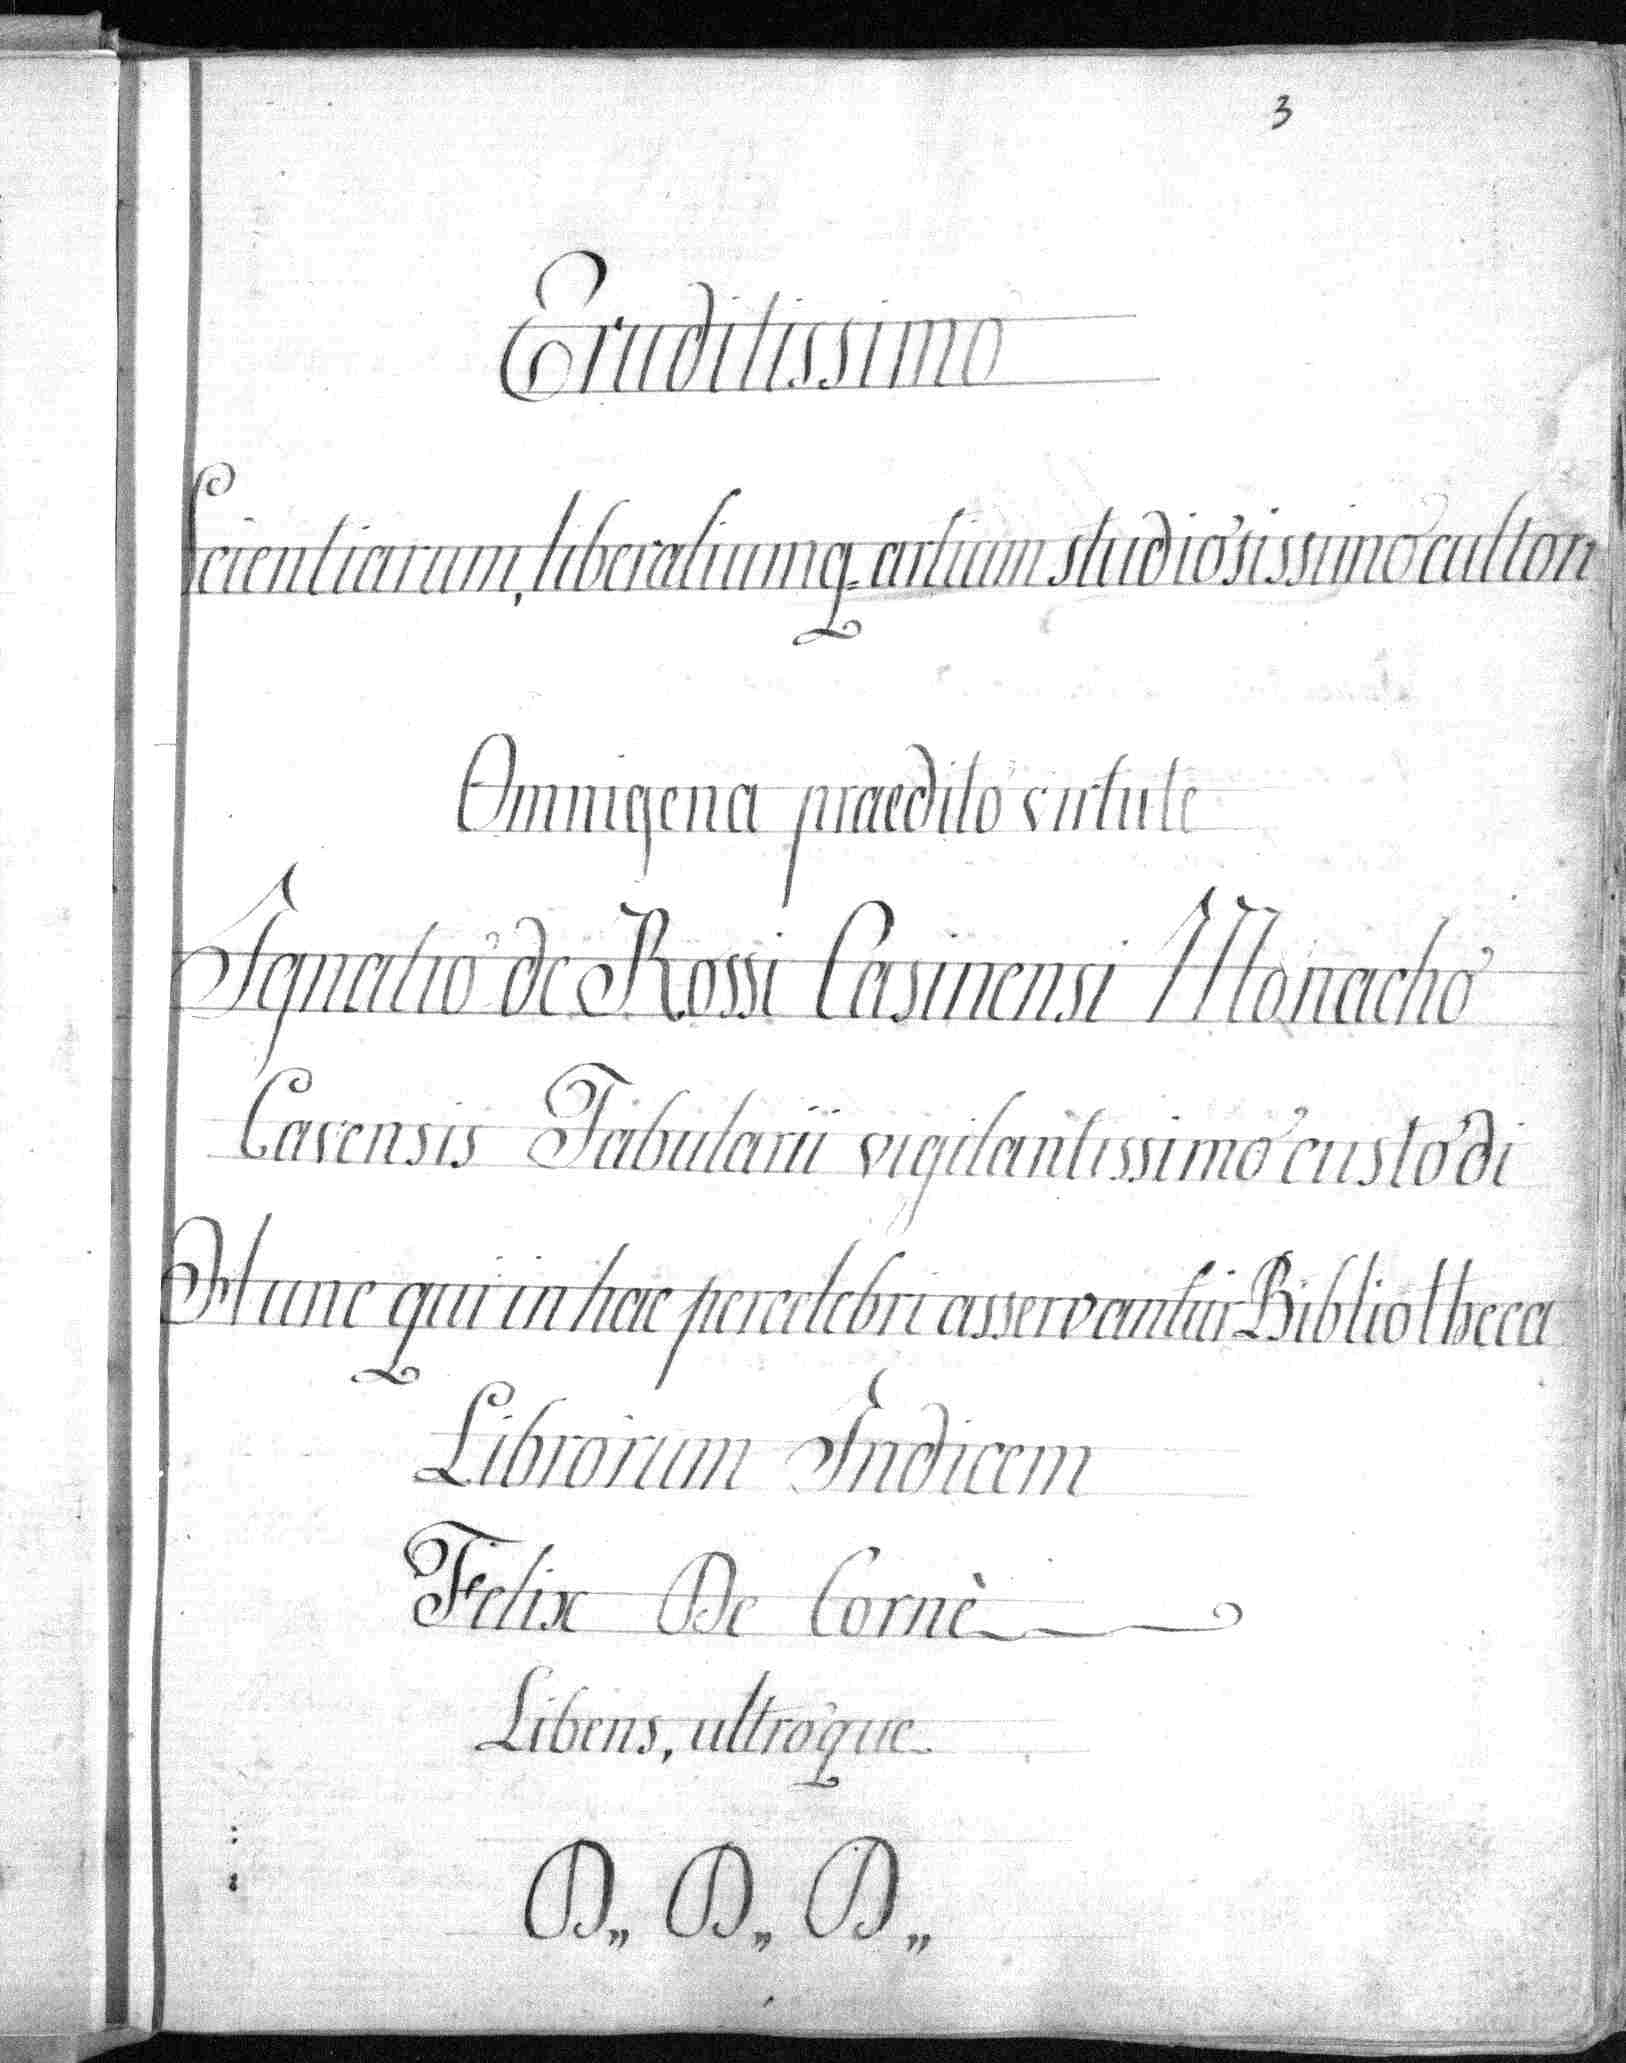 3
Eruditissimo
Scientiarum, liberaliumq. artium studiosissimo cultori
Omnigena praedito virtute
Ignatio de Rossi Casinensi Monacho
Cavensis Tabularii vigilantissimo custodi
Hunc qui in hac percelebri asservantur Bibliotheca
Librorum Indicem
Felix De Cornè
Libens, ultroque
D,, D,, D,,